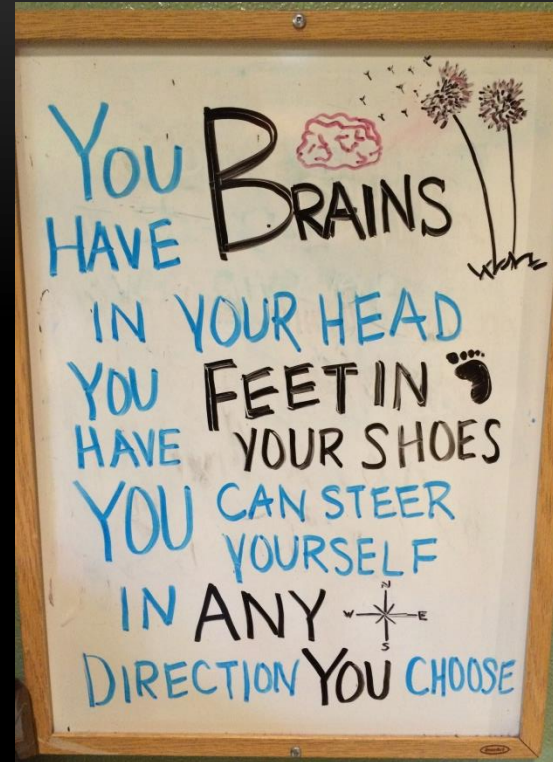 YOU BRAINS
HAVE
IN YOUR HEAD
YOU FEET IN
HAVE YOUR SHOES
YOU CAN STEER
YOURSELF
IN ANY N W E S
DIRECTION YOU CHOOSE